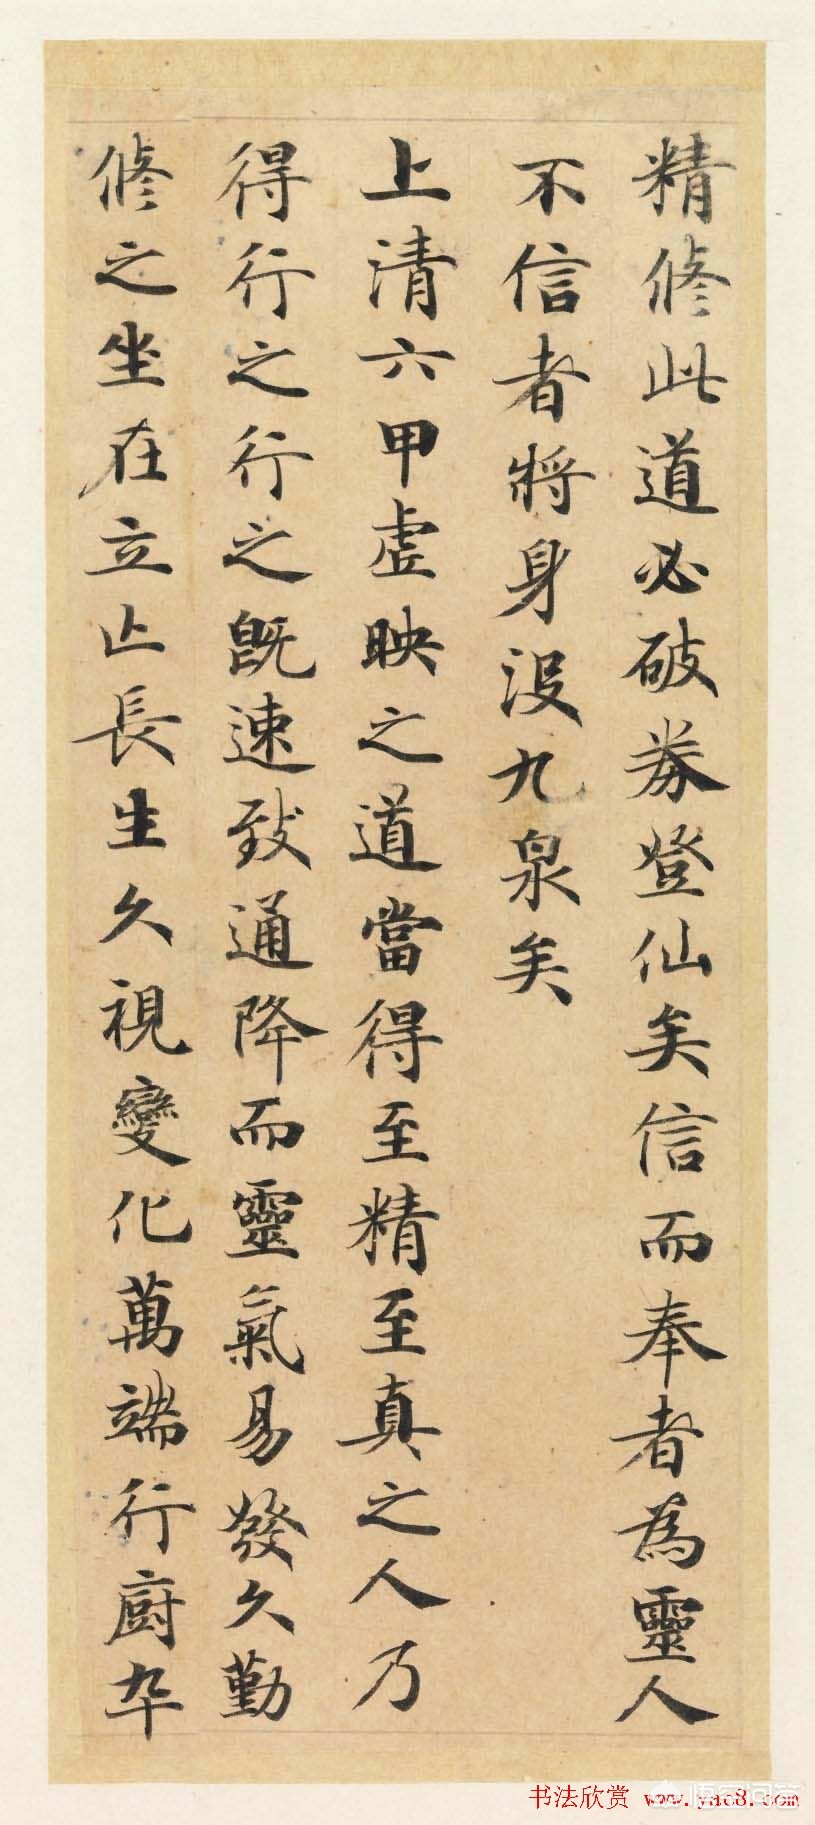 精脩此道必破券登仙矣信而奉者為靈人
不信者將身没九泉矣
上清六甲虛映之道當得至精至真之人乃
得行之行之既速致通降而靈氣易發久勤
脩之坐在立亡長生久視變化萬端行廚卒
书法欣赏 www.yac8.com
悟空问答